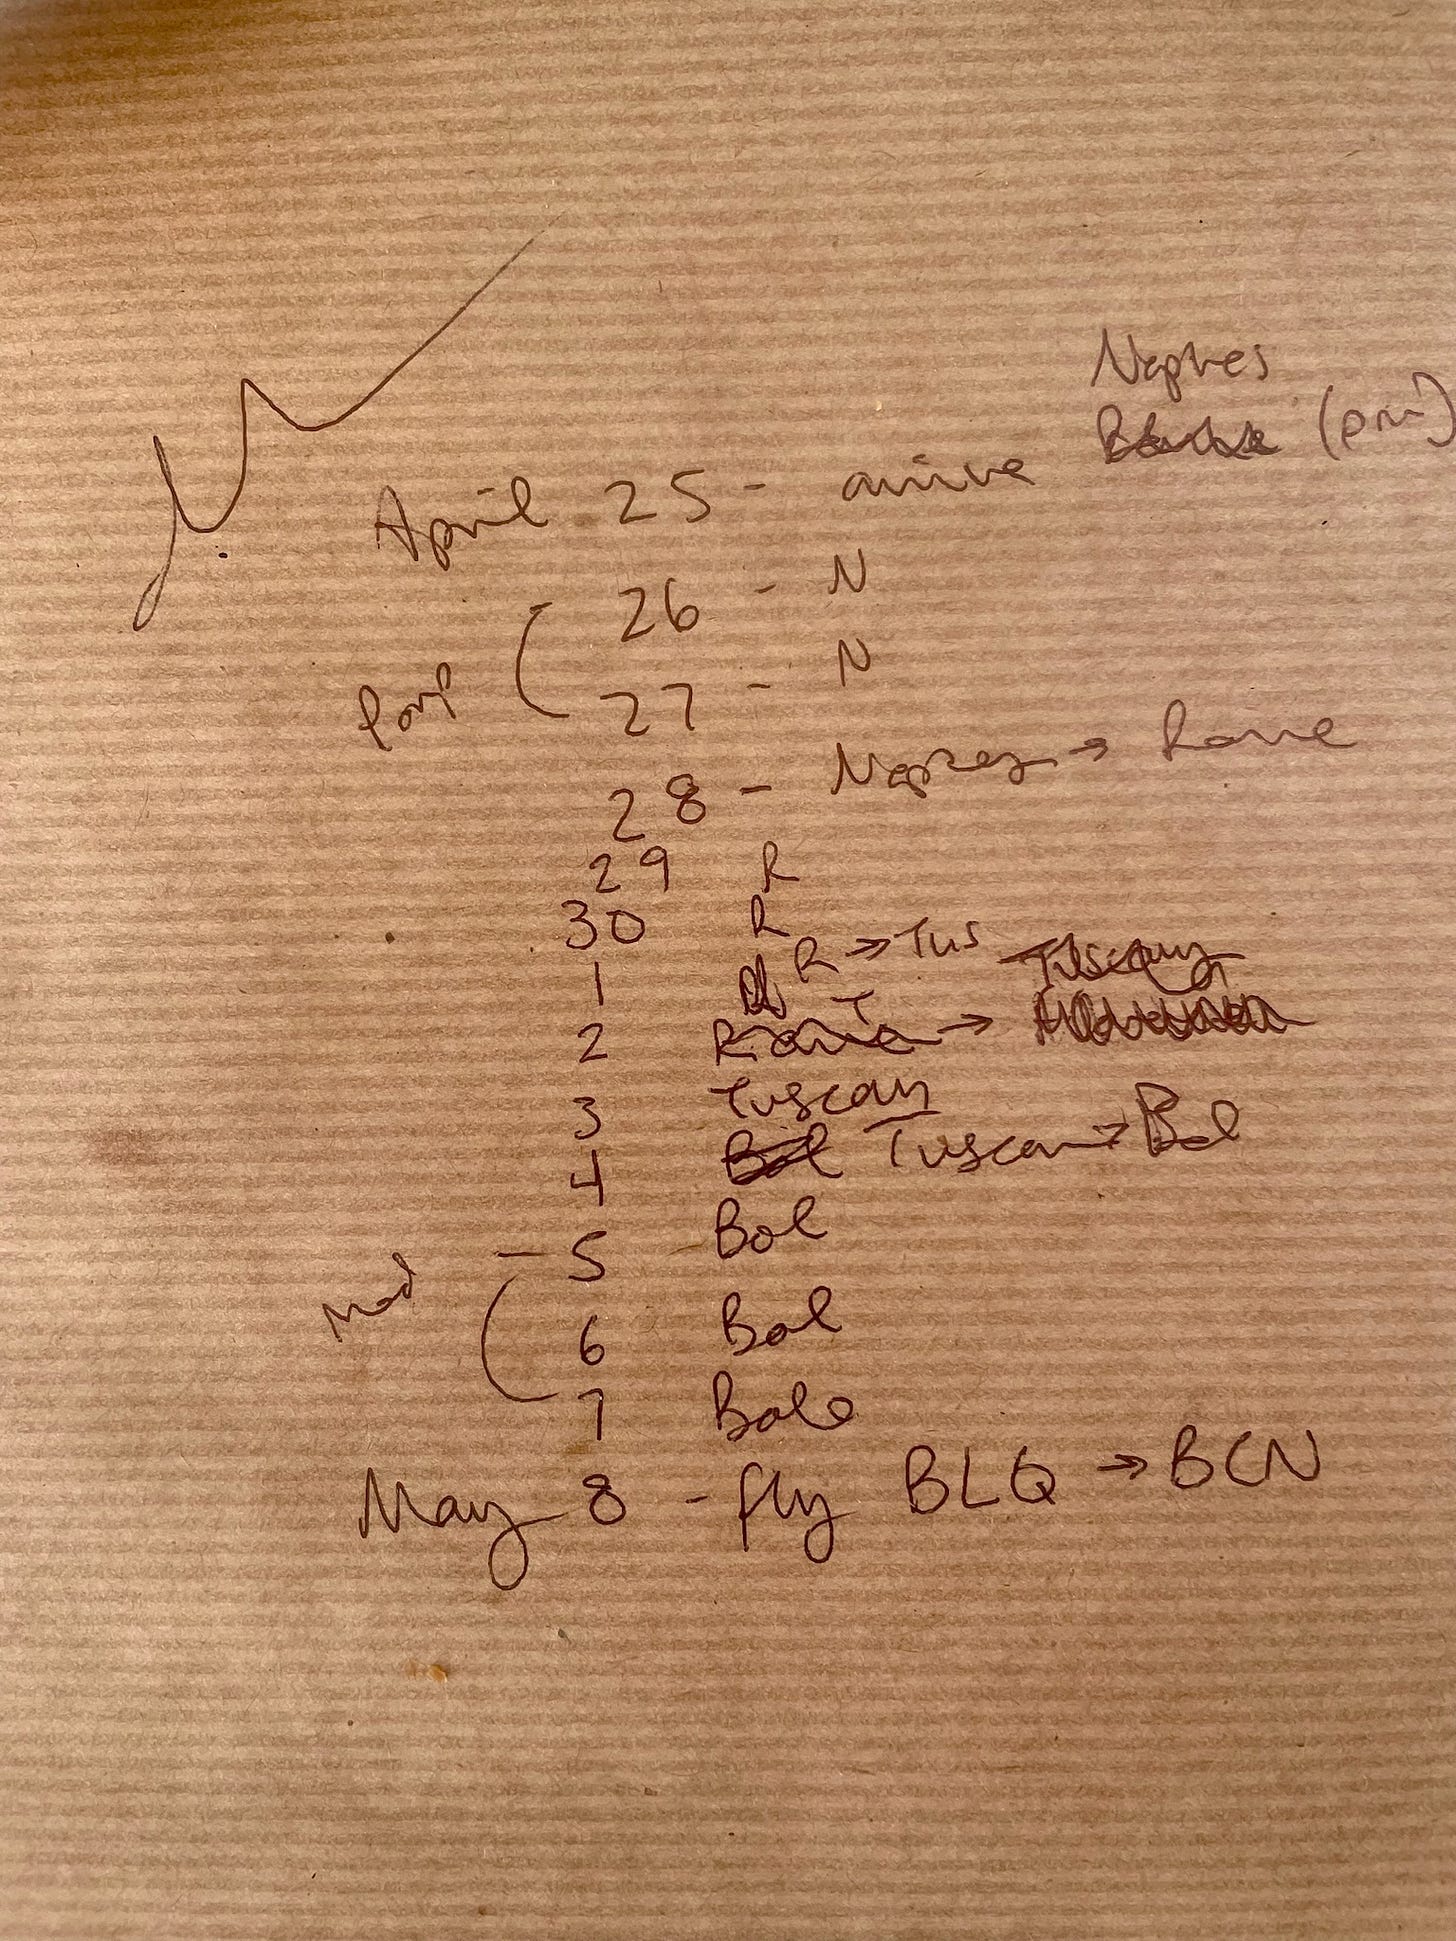 Naples
April 25 - arrive (pm)
26 - N
Pomp 27 - N
28 - Naples → Rome
29 R
30 R
1 R → Tus Tuscany
2 Rome T →
3 Tuscany
4 Bol Tuscan → Bol
5 Bol
Mod
6 Bol
7 Bolo
May 8 - fly BLQ → BCN